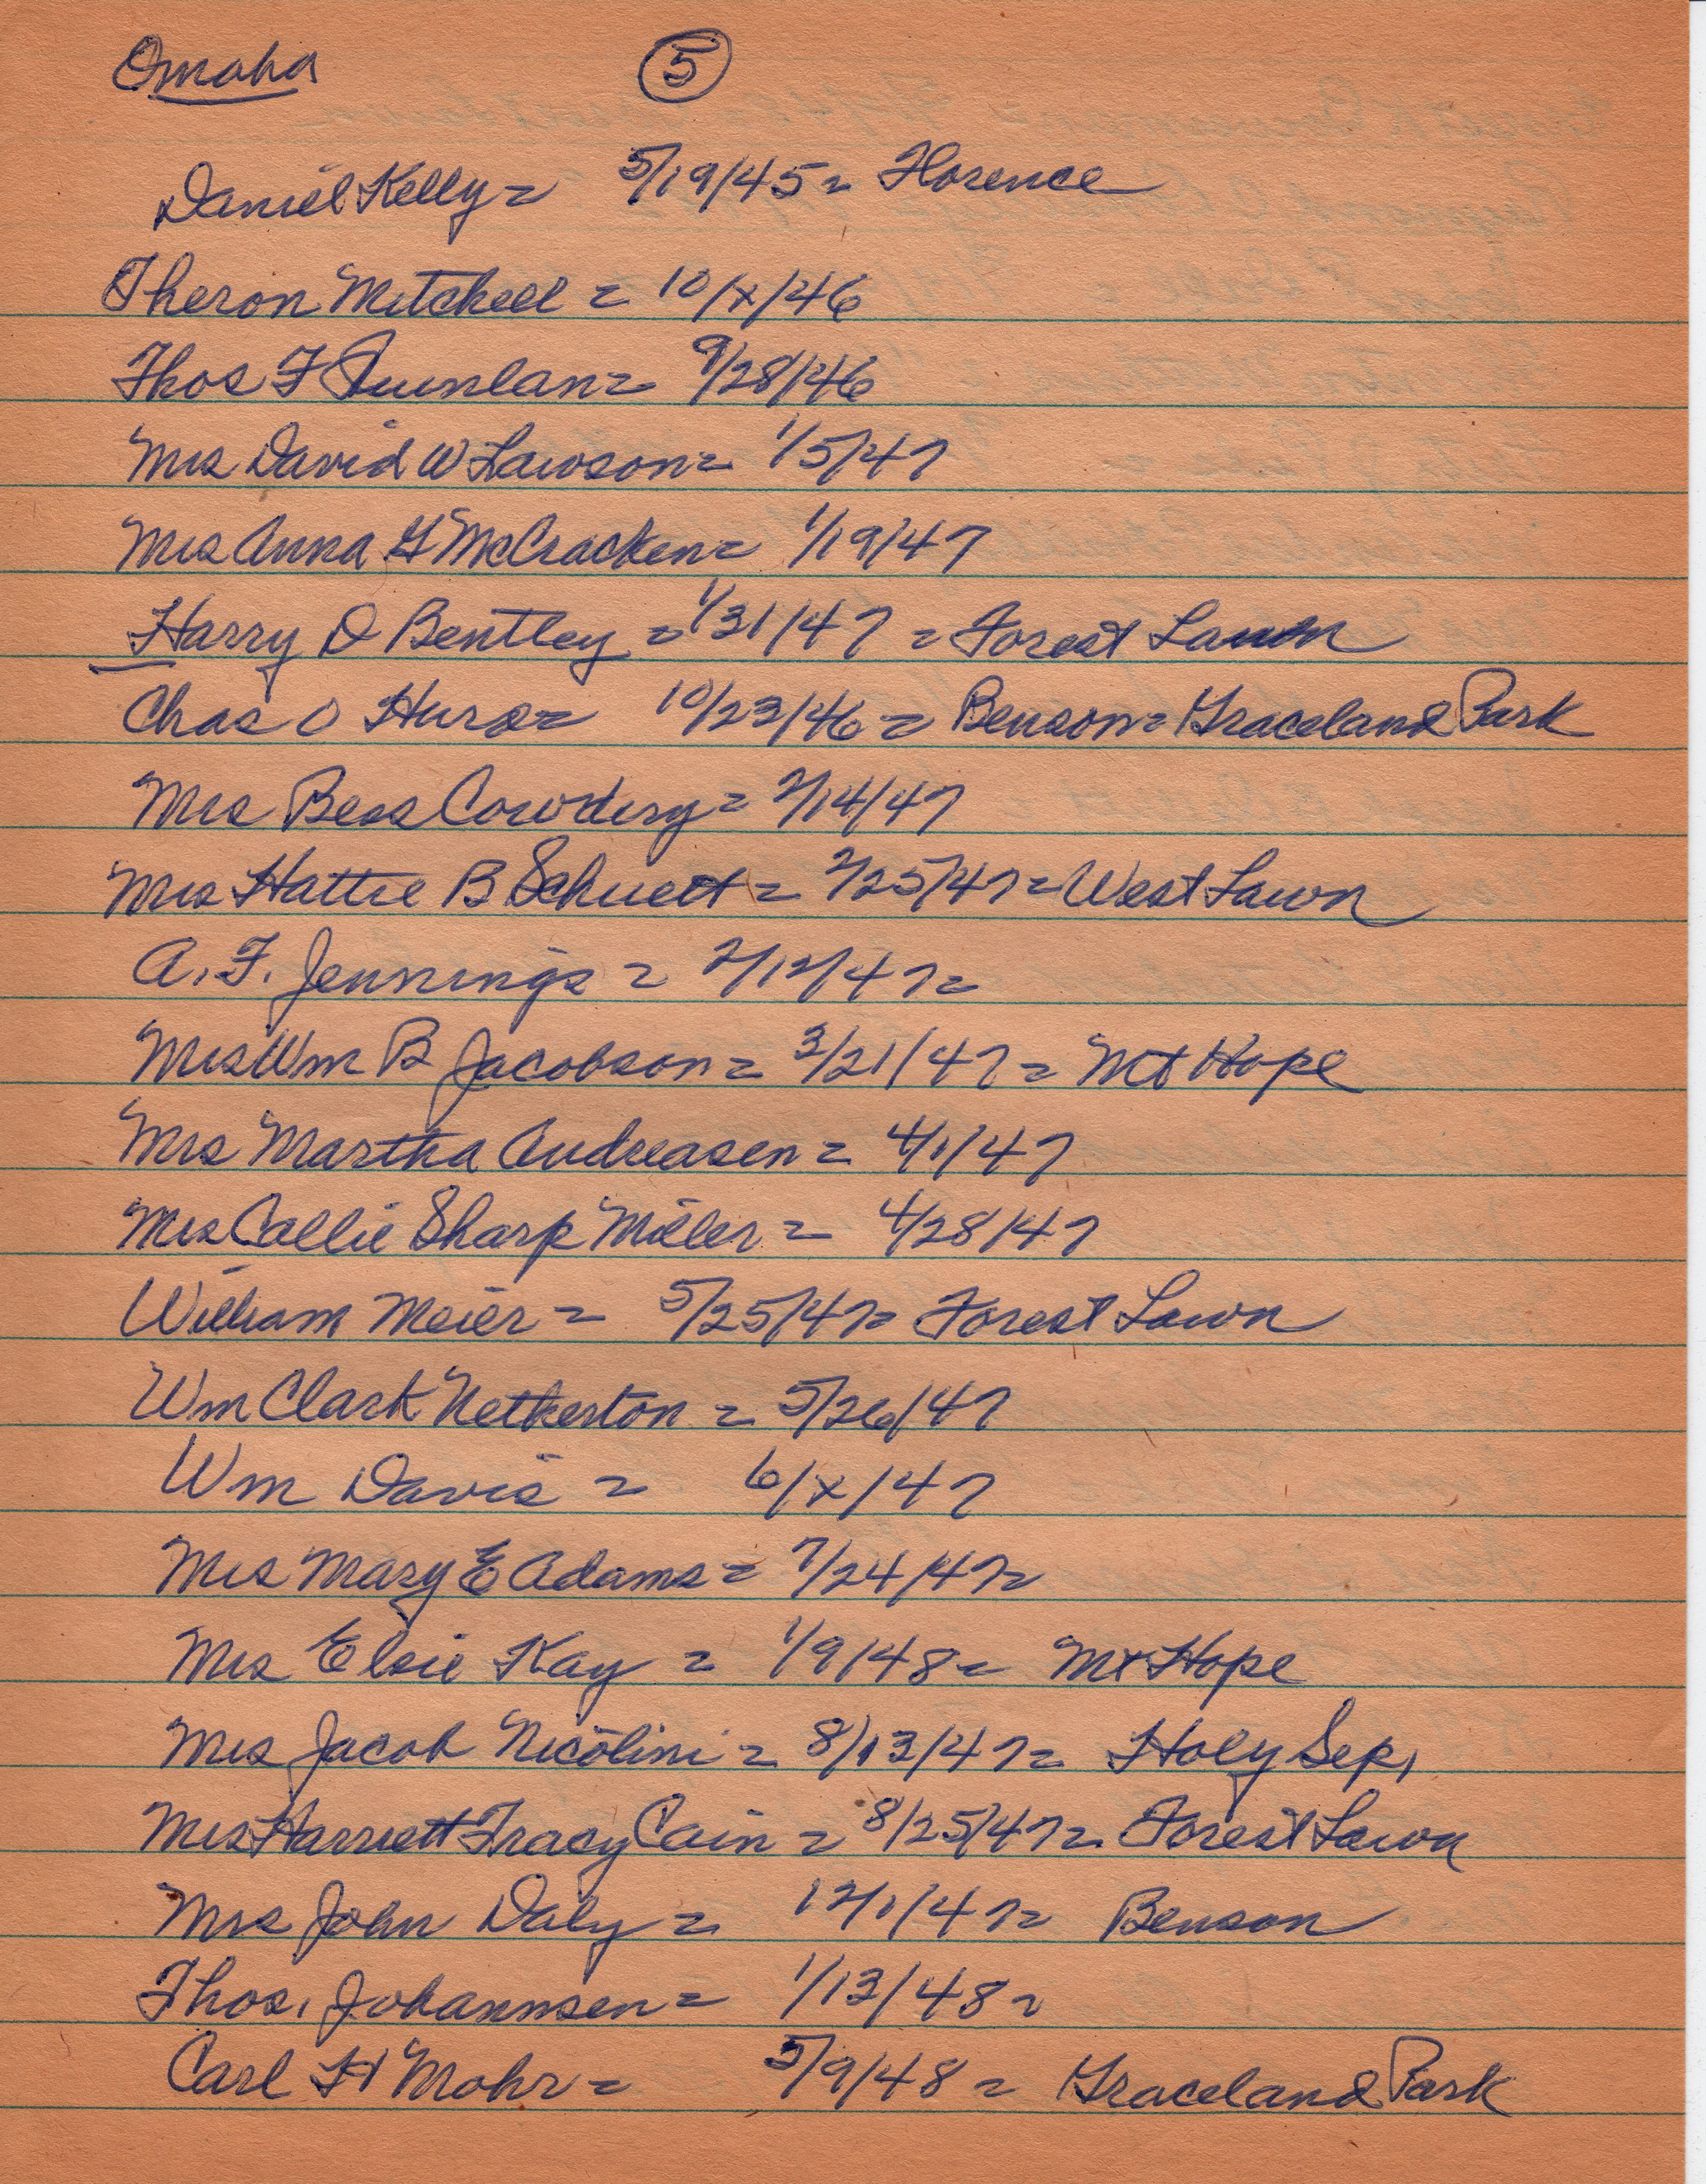 Omaha ⑤
Daniel Kelly = 5/19/45 = Florence
Theron Mitchell = 10/x/46
Thos F Quinlan = 9/28/46
Mrs David W Lawson = 1/5/47
Mrs Anna G McCracken = 1/19/47
Harry D Bentley = 1/31/47 = Forest Lawn
Chas O Hurd = 10/23/46 = Benson = Graceland Park
Mrs Bess Cowdery = 2/14/47
Mrs Hattie B Schuett = 2/25/47 = West Lawn
A. F. Jennings = 2/12/47 =
Mrs Wm B Jacobson = 3/21/47 = Mt Hope
Mrs Martha Andreasen = 4/1/47
Mrs Callie Sharp Miller = 4/28/47
William Meier = 5/25/47 = Forest Lawn
Wm Clark Netherton = 5/26/47
Wm Davis = 6/x/47
Mrs Mary E Adams = 7/24/47 =
Mrs Elsie Kay = 1/9/48 = Mt Hope
Mrs Jacob Nicolini = 8/13/47 = Holy Sep.
Mrs Harriett Tracy Cain = 8/25/47 = Forest Lawn
Mrs John Daly = 12/1/47 = Benson
Thos. Johannsen = 1/13/48 =
Carl H Mohr = 5/9/48 = Graceland Park